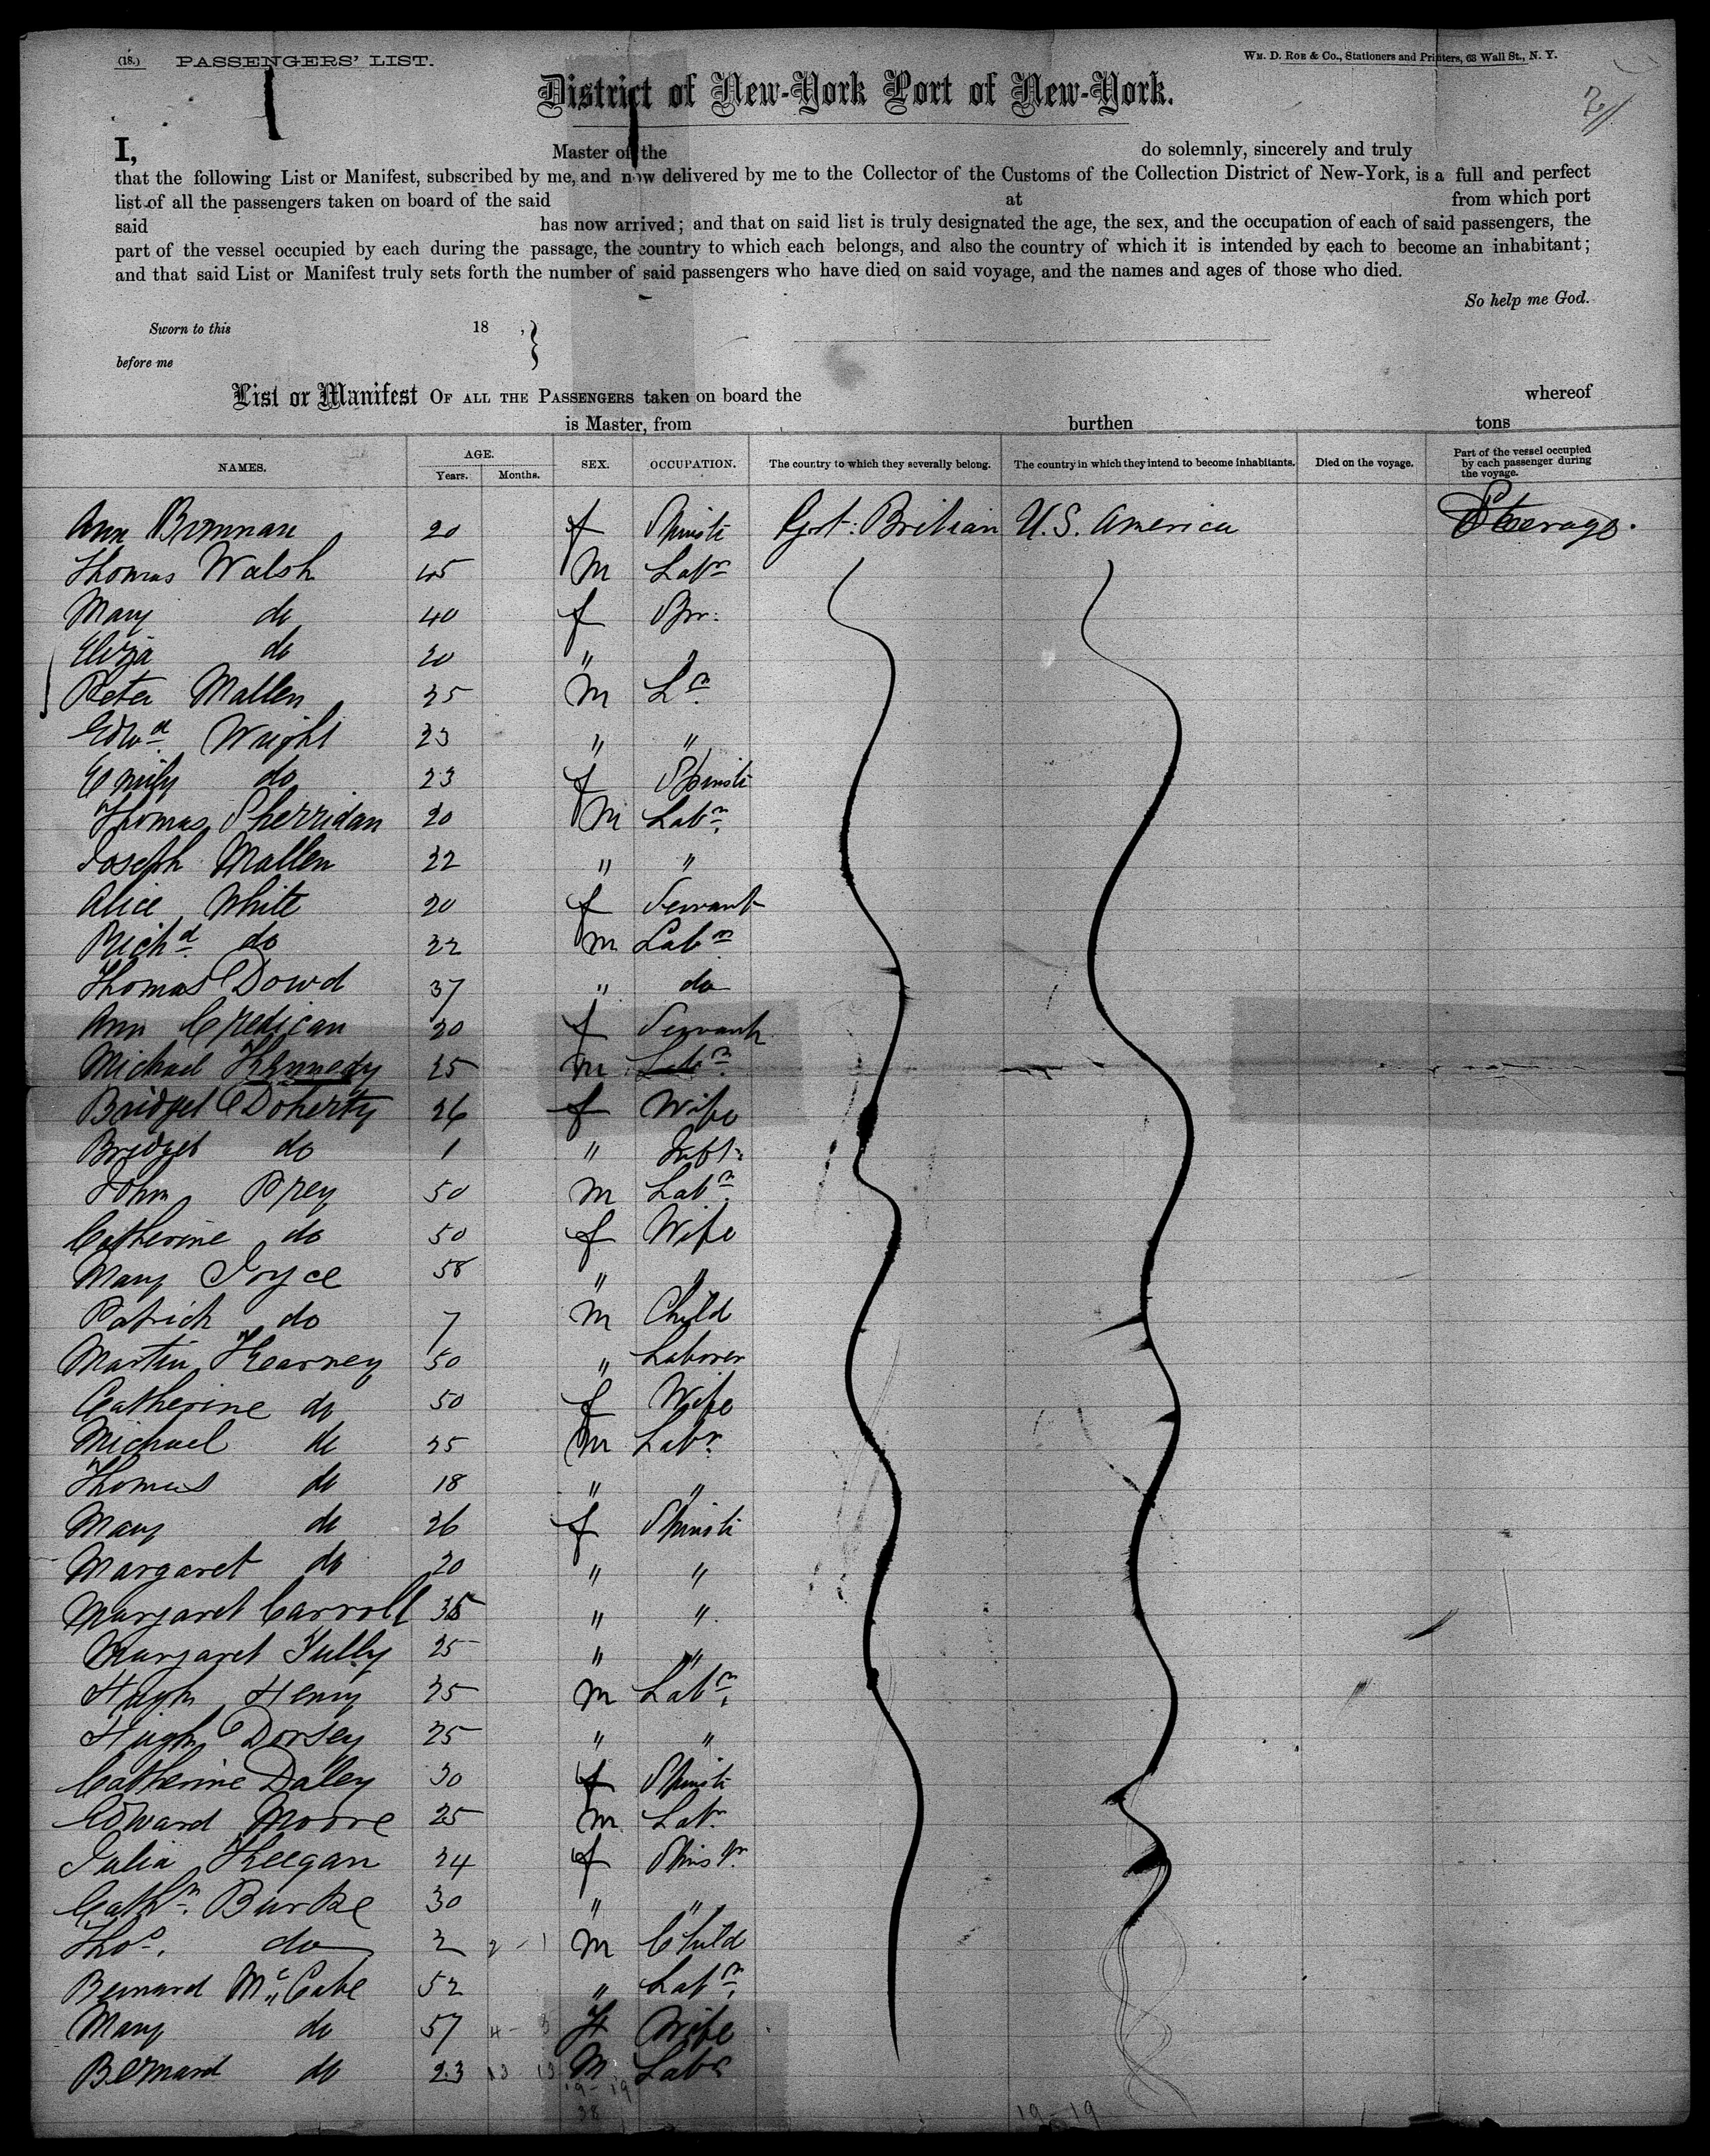 (18.) PASSENGERS' LIST. WM. D. ROE & CO., Stationers and Printers, 63 Wall St., N. Y.
District of New-York Port of New-York.
I, Master of the do solemnly, sincerely and truly
that the following List or Manifest, subscribed by me, and now delivered by me to the Collector of the Customs of the Collection District of New-York, is a full and perfect
list of all the passengers taken on board of the said at from which port
said has now arrived; and that on said list is truly designated the age, the sex, and the occupation of each of said passengers, the
part of the vessel occupied by each during the passage, the country to which each belongs, and also the country of which it is intended by each to become an inhabitant;
and that said List or Manifest truly sets forth the number of said passengers who have died on said voyage, and the names and ages of those who died.
So help me God.
Sworn to this 18 , }
before me
List or Manifest OF ALL THE PASSENGERS taken on board the whereof
is Master, from burthen tons
NAMES. AGE. Years. Months. SEX. OCCUPATION. The country to which they severally belong. The country in which they intend to become inhabitants. Died on the voyage. Part of the vessel occupied by each passenger during the voyage.
Ann Brennan 20 f Spinstr Grt: Britian U.S. America Steerage.
Thomas Walsh 45 M Labr
Mary do 40 f
Eliza do 20 "
Peter Mallen 25 M Lr
Edwd Wright 23 " "
Emily do 23 f Spinstr
Thomas Sherridan 20 M Labr.
Joseph Mallen 22 " "
Alice White 20 f Servant
Richd do 22 M Labr
Thomas Dowd 37 " do
Ann Credican 20 f Servant
Michael Kennedy 25 M Labr.
Bridget Doherty 26 f Wife
Bridget do 1 " Inft.
John Prey 50 M Labr
Catherine do 50 f Wife
Mary Joyce 58 " "
Patrick do 7 M Child
Martin Kearney 50 " Laborer
Catherine do 50 f Wife
Michael do 25 M Labr.
Thomas do 18 " "
Mary do 26 f Spinstr
Margaret do 20 " "
Margaret Carroll 35 " "
Margaret Tully 25 " "
Hugh Henry 25 M Labr.
Hugh Dorsey 25 " "
Catherine Daley 30 f Spinstr
Edward Moore 25 M Labr.
Julia Keegan 24 f Spinstr.
Cathn. Burke 30 " "
Thos. do 2 M Child
Bernard McCabe 52 " Labr.
Mary do 57 f Wife
Bernard do 23 M Labr
19-19
38
19-19